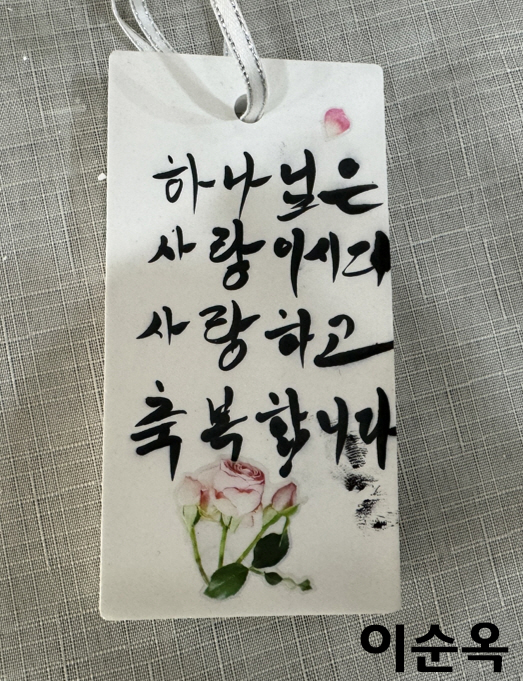 하나님은
사랑이시라
사랑하고
축복합니다
이순옥